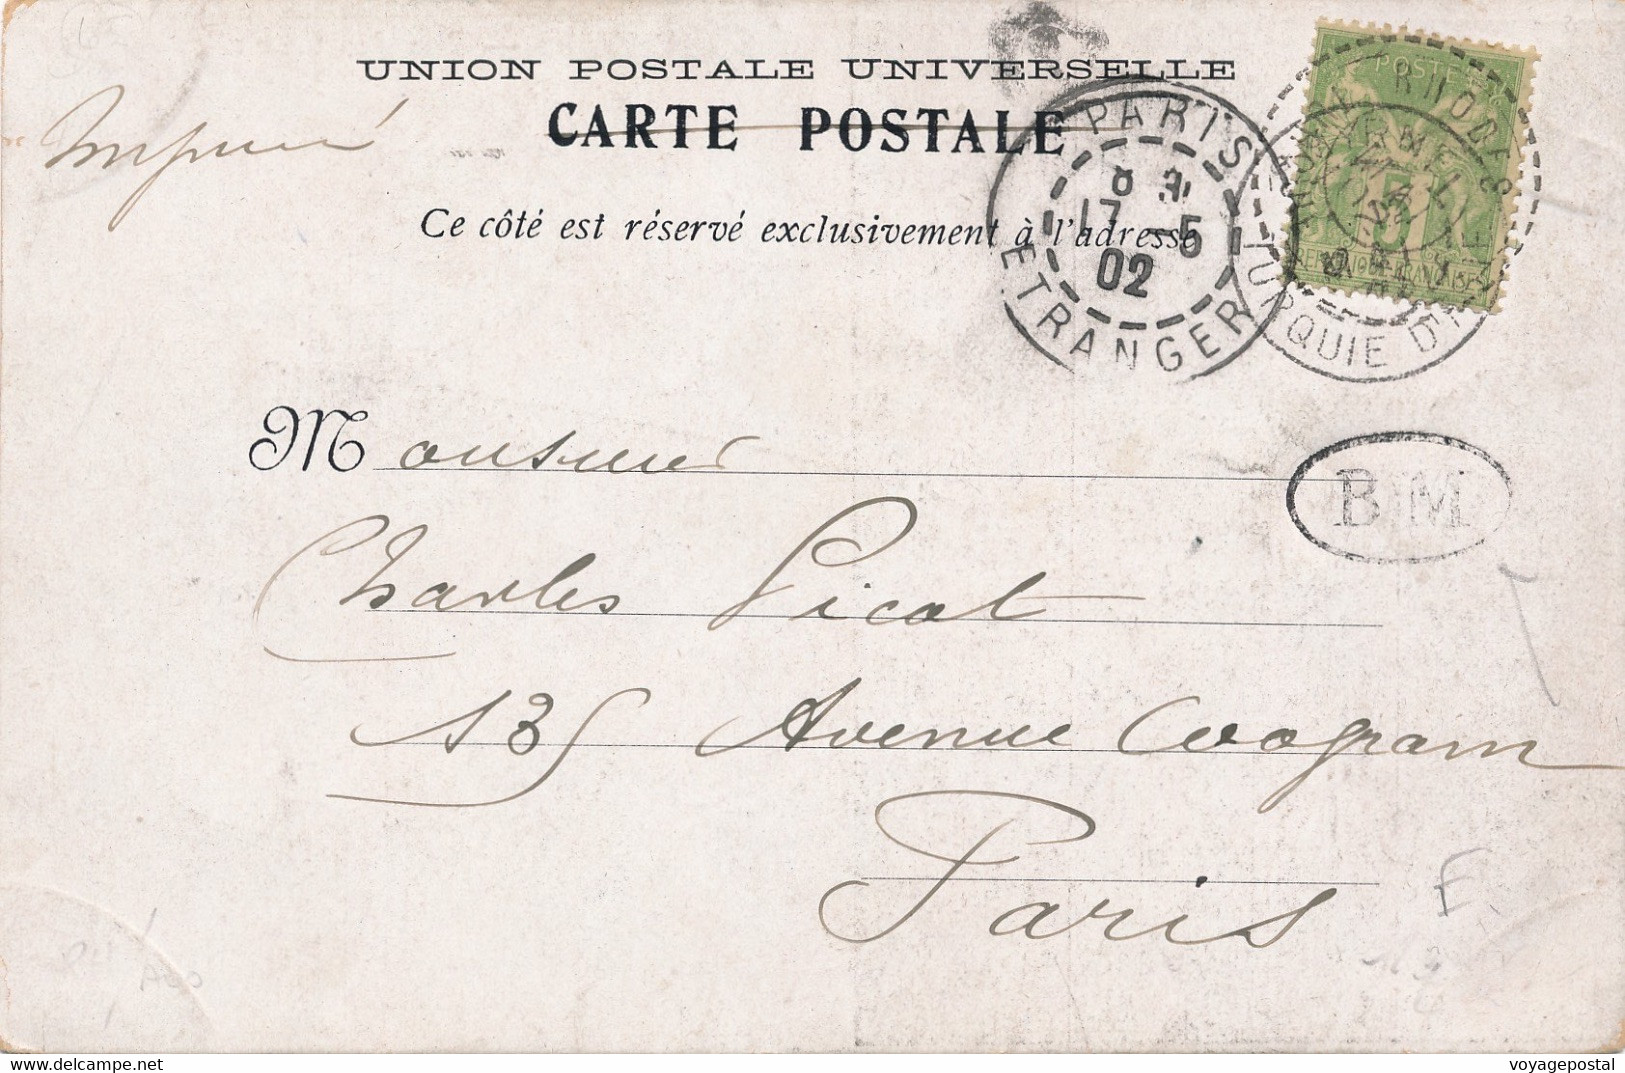 UNION POSTALE UNIVERSELLE
CARTE POSTALE
Imprimé
Ce côté est réservé exclusivement à l'adresse
PARIS
17 -5
02
ETRANGER
RHODES
TURQUIE D'ASIE
POSTES
5
REPUBLIQUE FRANÇAISE
Monsieur
BM
Charles Picot
135 Avenue Wagram
Paris
E
voyagepostal